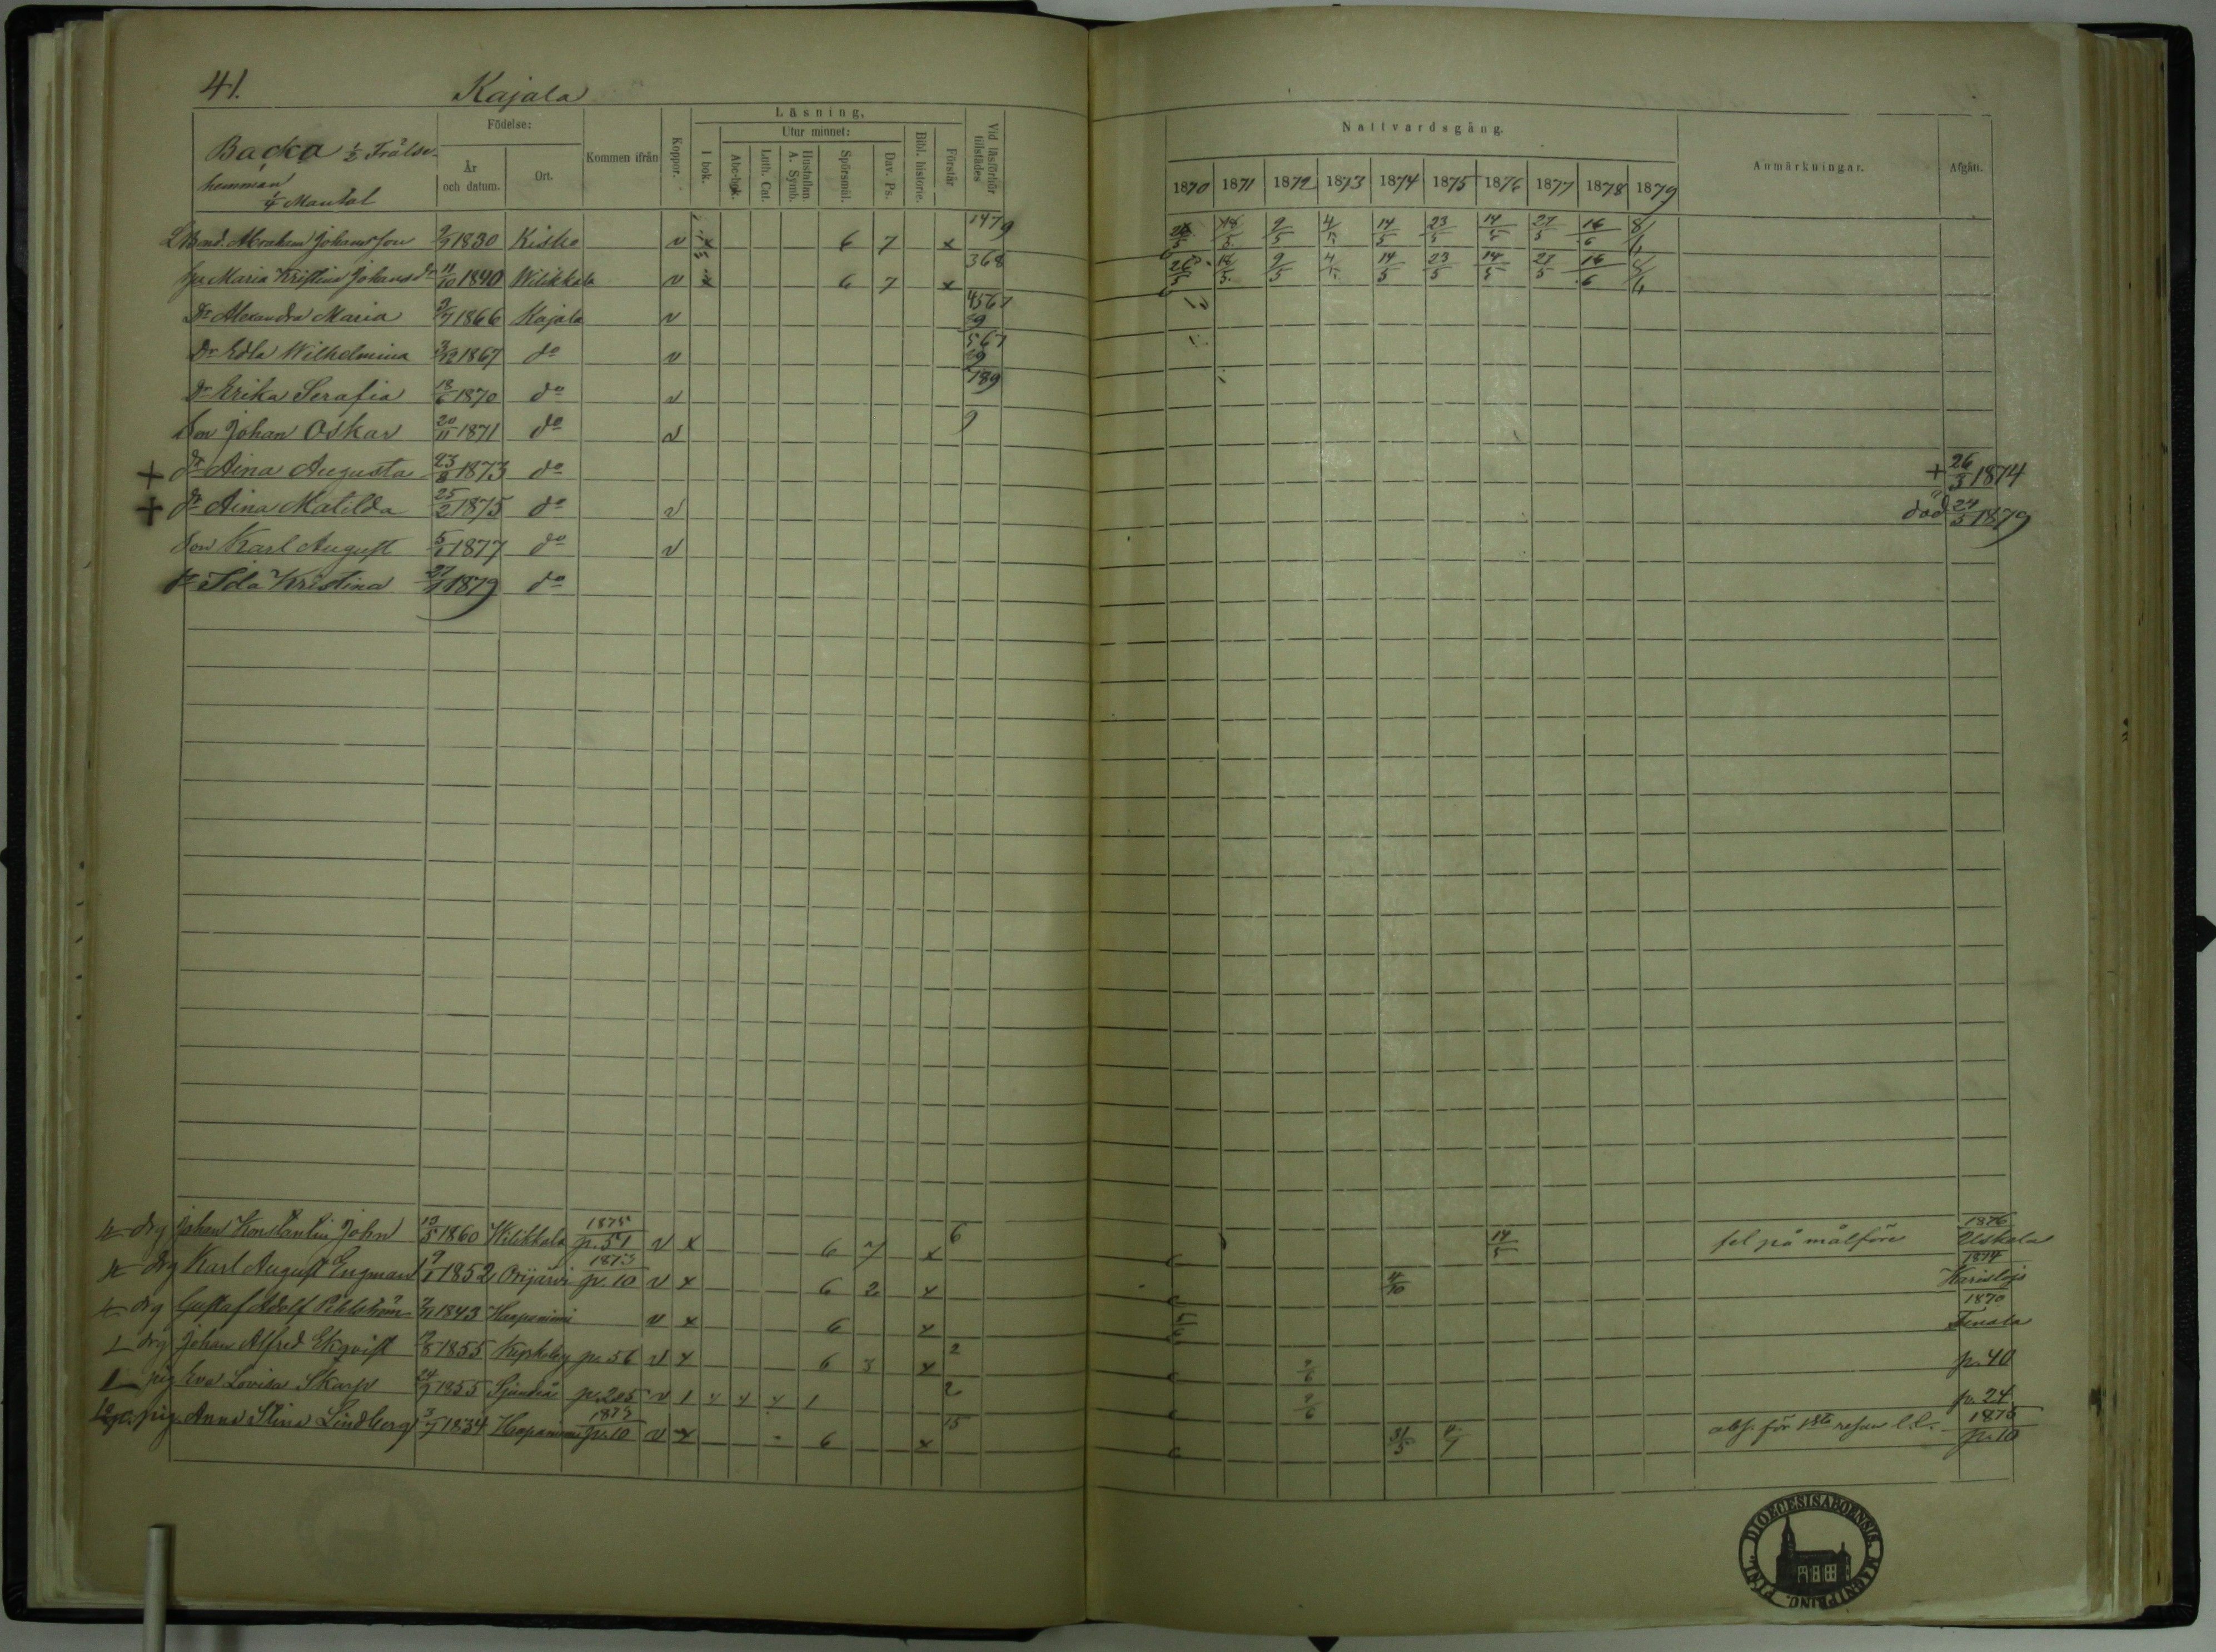 41. Kajala
Backa 1/2 Frälse-
hemman
1/4 Mantal
Födelse:
År och datum.
Ort.
Kommen ifrån
Koppor.
Läsning,
I bok.
Utur minnet:
Abc-bok.
Luth. Cat.
Hustaflan. A. Symb.
Spörsmål.
Dav. Ps.
Bibl. historie.
Förstår
Vid läsförhör tillstädes
Nattvardsgång.
1870 1871 1872 1873 1874 1875 1876 1877 1878 1879
Anmärkningar.
Afgått.
Bond. Abraham Johansson 9/9 1830 Kisko v x 6 7 x 1479 9/5 4/5 14/5 23/5 14/5 27/5 16/6 8/6
Maria Kristina Johansdr 11/10 1840 Wilikkala v x 6 7 x 368 26/5 9/5 4/5 14/5 23/5 14/5 27/5 16/6 8/6
Dr Alexandra Maria 1866 Kajala v 4567 89
Dr Edla Wilhelmina 3/12 1867 do v 567 89
Dr Erika Serafia 18/6 1870 do v 789
Son Johan Oskar 20/11 1871 do v 9
+ dr Aina Augusta 23/8 1873 do + 26/3 1874
+ dr Aina Matilda 25/2 1875 do v död 24/5 1879
Son Karl August 5/1 1877 do v
dr Ida Kristina 27/1 1879 do
drg Johan Konstantin John 19/5 1860 Wilikkala 1875 p. 51 v x 6 7 x 6 14/5 fel på målföre 1876 Uskela
drg Karl August Engman 1852 Orijärvi 1873 p. 10 v x 6 2 x 4/10 1874 Karislojo
drg Gustaf Adolf 1843 Haapaniemi v x 6 x 1870 Tenala
drg Johan Alfred Ekqvist 1855 p. 56 v x 6 3 x 2 9/6 p. 40
pig Eva Lovisa Skarp 24/7 1855 Sjundeå p. 205 v 1 1 2 9/6 p. 24
pig. Anna Stina Lindberg 3/7 1834 Haapaniemi 1873 p. 10 v x 6 x 15 31/5 abs. för 1sta resan l. 1875 p. 10
DIOECESIS ABOENSIS. MAGNI PRINC. FINL.